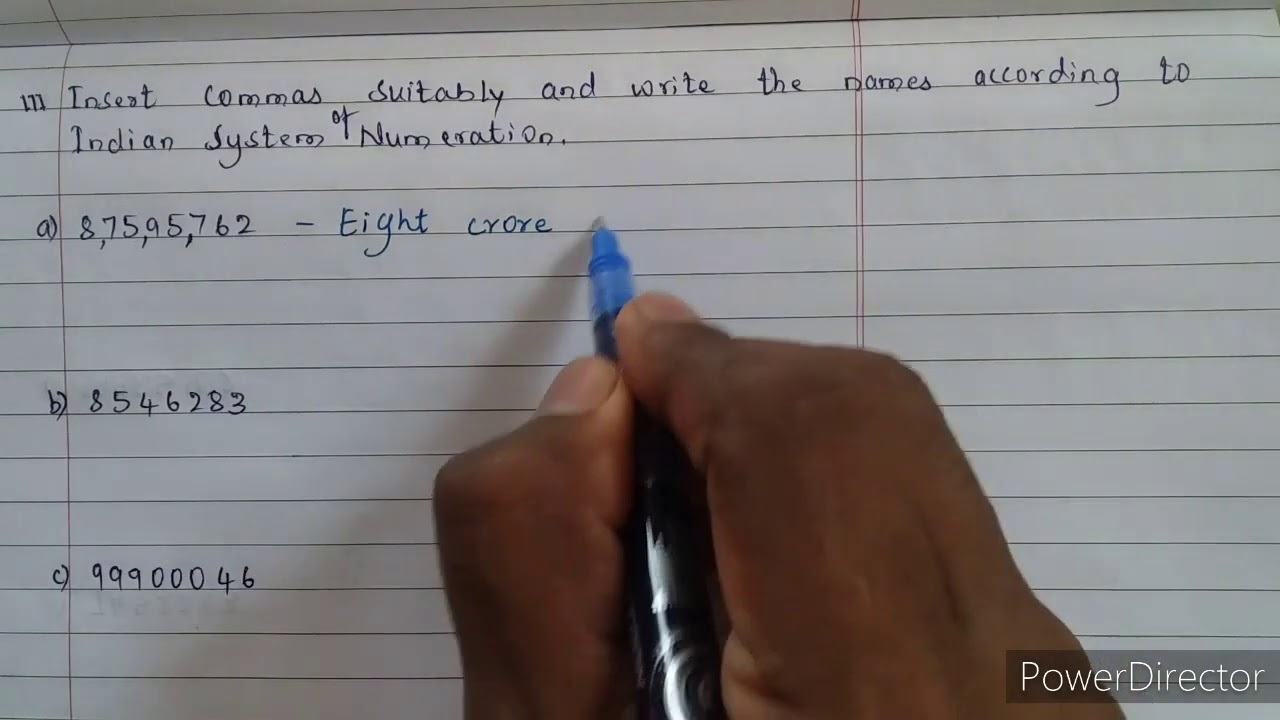 III Insert commas suitably and write the names according to
Indian System of Numeration.
a) 8,75,95,762 - Eight crore
b) 8546283
c) 99900046
PowerDirector